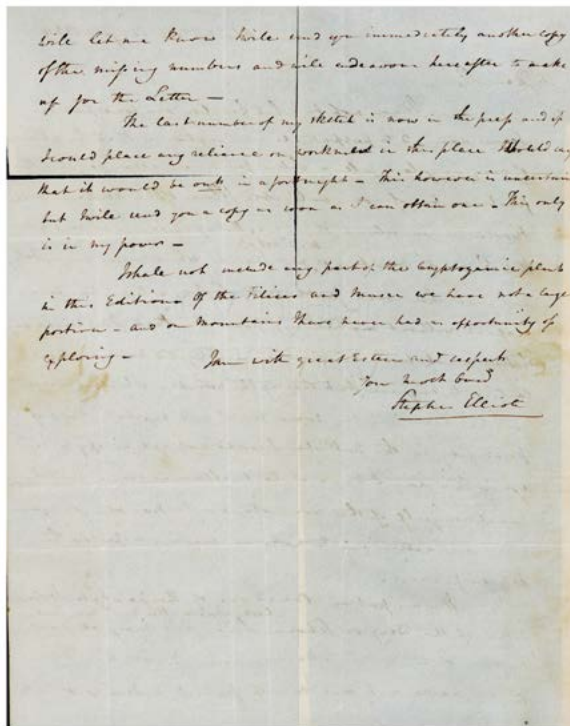 will let me know I will send you immediately another copy
of the missing numbers and will endeavour hereafter to make
up for the Letter —
The last number of my sketch is now in the press and if
I could place any reliance on workmen in this place I should say
that it would be out in a fortnight — This however is uncertain
but I will send you a copy as soon as I can obtain one — This only
is in my power —
I shall not include any part of the cryptogamic plants
in this Edition — Of the Filices and Musci we have not a large
portion — and our mountains I have never had an opportunity of
exploring —
I am with great Esteem and respect
your most
Stephen Elliott